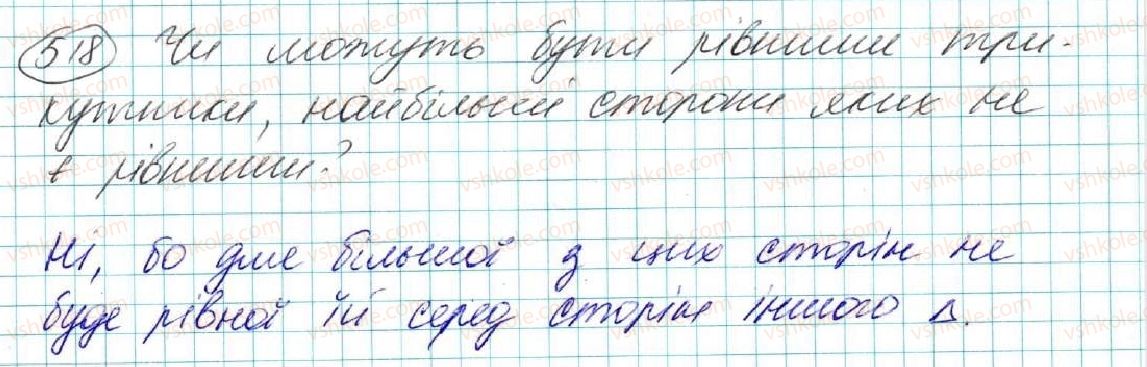 518 Чи можуть бути рівними три-
кутники, найбільші сторони яких не
є рівними?
Ні, бо для більшої з цих сторін не
буде рівної їй серед сторін іншого Δ.